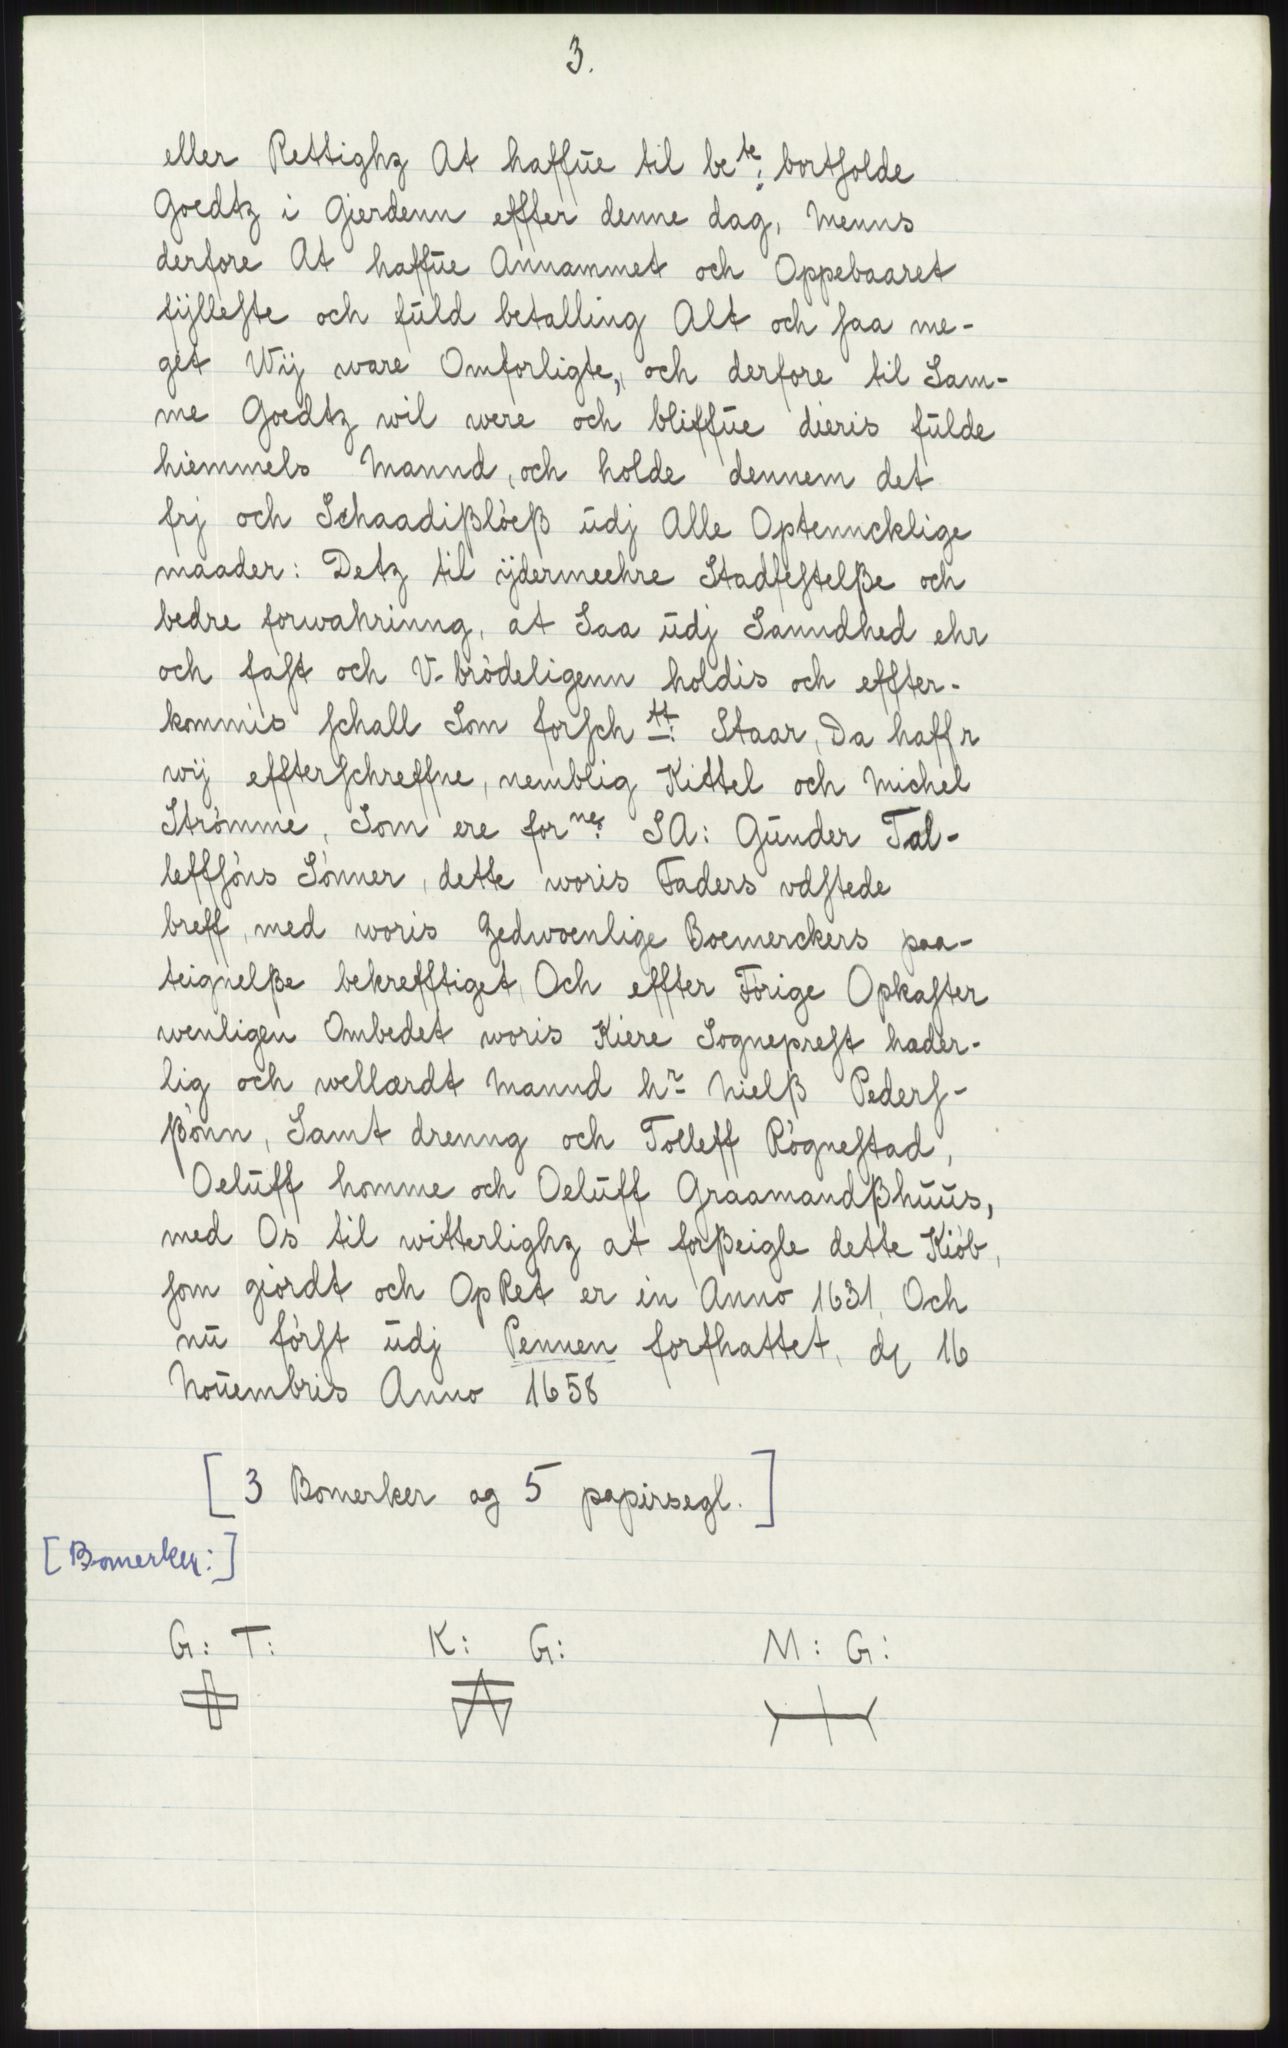 3.
eller Rettighz At haffue til be te: bortſolde
Goedtz i Gierdenn effter denne dag, Menns
derfore At haffue Annammet och Oppebaaret
fÿlleſte och fuld betalling Alt och ſaa me-
get Wij ware Omforligte, och derfore til Sam-
me Goedtz wil were och bliffue dieris fulde
hiemmels Mannd, och holde dennem det
frj och Schaadißlöeß udj Alle Optenncklige
maader: Detz til ijdermeehre Stadfeſtelße och
bedre forwahrinng, at Saa udj Sanndhed ehr
och faſt och V-brödeligenn holdis och effter-
kommis ſchall Som forſch tt: Staar, Da haffr
wij effterſchreffne, nemblig Kittel och Michel
Strömme, Som ere for ne: SA: Gunder Tal-
leffſöns Sönner, dette woris Faders vdſtede
breff, med woris Zedwoenlige Boemerckers paa-
teignelße bekrefftiget, Och effter Förige Opkaſter
wenligen Ombedet woris Kiere Sognepreſt hæder-
lig och wellærdt Mannd hr Nielß Pederſ-
ßönn, Samt drenng och Tolleff Rögneſtad,
Oeluff homme och Oeluff Graamandßhuus,
med Os til witterlighz at forßeigle dette Kiöb,
ſom giördt och OpRet er in Anno 1631, Och
nu förſt udj Pennen forfhattet, dȩ 16
Nouembris Anno 1658
[3 Bomerker og 5 papirsegl.]
[Bomerker:]
G: T: K: G: M: G: